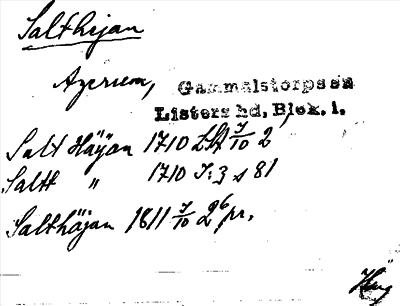 Salthejan
Agerum, Gammalstorps sn
Listers hd, Blek. l.
Salt Häijan 1710 LSt 7/10 2
Saltt " 1710 J:3 s 81
Salthäjan 1811 7/10 26 pr.